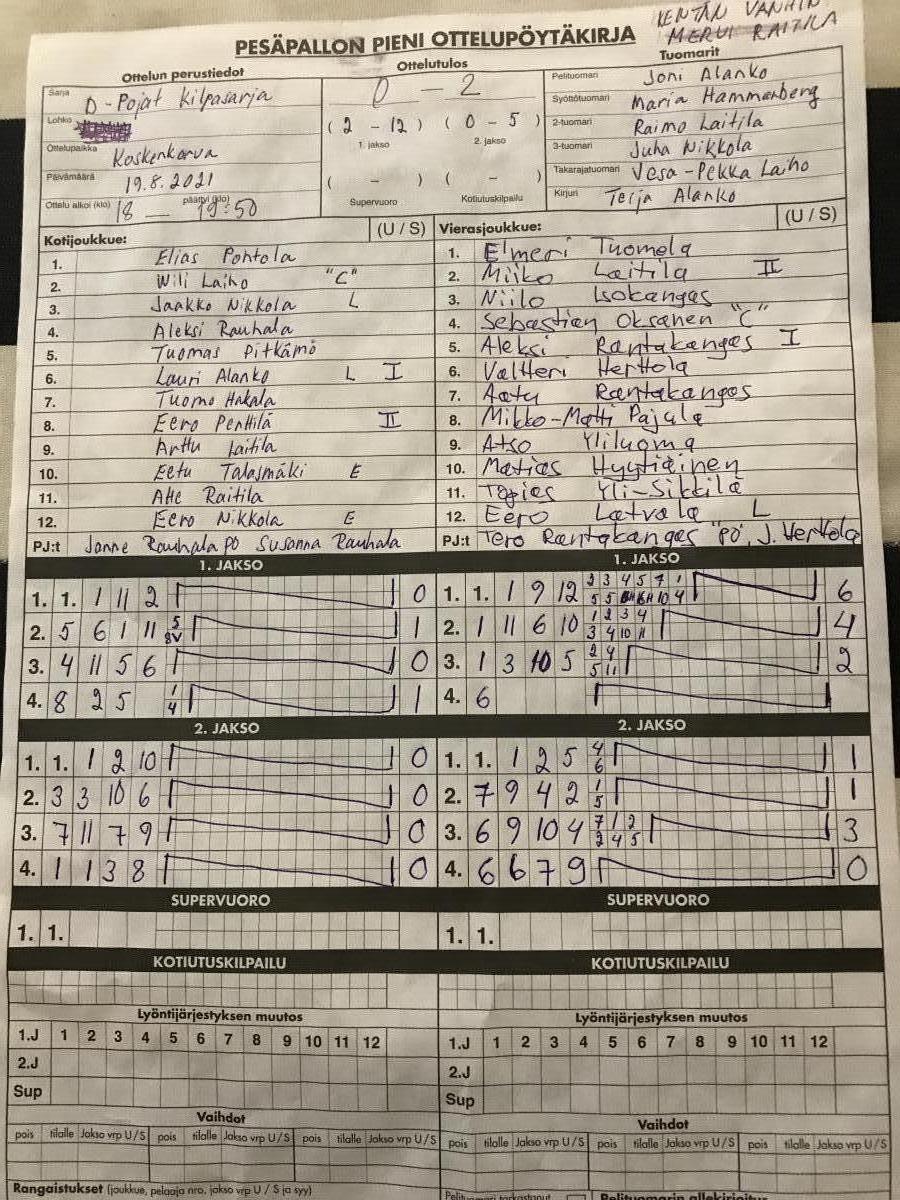 KENTÄN VANHIN
MERVI RAITILA
PESÄPALLON PIENI OTTELUPÖYTÄKIRJA
Ottelun perustiedot
Sarja D-Pojat Kilpasarja
Lohko
Ottelupaikka Koskenkorva
Päivämäärä 19.8.2021
Ottelu alkoi (klo) 18 — päättyi (klo) 19:50
Ottelutulos
0 - 2
( 2 - 12 ) ( 0 - 5 )
1. jakso 2. jakso
( - ) ( - )
Supervuoro Kotiutuskilpailu
Tuomarit
Pelituomari Joni Alanko
Syöttötuomari Maria Hammarberg
2-tuomari Raimo Laitila
3-tuomari Juha Nikkola
Takarajatuomari Vesa-Pekka Laiho
Kirjuri Terja Alanko
Kotijoukkue: (U / S)
1. Elias Pohtola
2. Wili Laiho "C"
3. Jaakko Nikkola L
4. Aleksi Rauhala
5. Tuomas Pitkämö
6. Lauri Alanko L I
7. Tuomo Hakala
8. Eero Penttilä II
9. Arttu Laitila
10. Eetu Talasmäki E
11. Atte Raitila
12. Eero Nikkola E
PJ:t Janne Rauhala PO Susanna Rauhala
Vierasjoukkue: (U / S)
1. Elmeri Tuomela
2. Miiko Laitila II
3. Niilo Isokangas
4. Sebastian Oksanen "C"
5. Aleksi Rantakangas I
6. Valtteri Herttola
7. Aatu Rantakangas
8. Mikko-Matti Pajula
9. Atso Yliluoma
10. Matias Hyytiäinen
11. Topias Yli-Sikkilä
12. Eero Latvala L
PJ:t Tero Rantakangas "PO", J. Herttola
1. JAKSO
1. 1. 1 11 2 0
2. 5 6 1 11 5 8V 1
3. 4 11 5 6 0
4. 8 2 5 1 4 1
2. JAKSO
1. 1. 1 2 10 0
2. 3 3 10 6 0
3. 7 11 7 9 0
4. 1 1 3 8 0
SUPERVUORO
1. 1.
KOTIUTUSKILPAILU
1. JAKSO
1. 1. 1 9 12 2 3 4 5 7 1 6
5 5 10 4
2. 1 11 6 10 1 2 3 4 4
3 4 10 11
3. 1 3 10 5 2 4 2
5 11
4. 6
2. JAKSO
1. 1. 1 2 5 4 6 1
2. 7 9 4 2 1 5 1
3. 6 9 10 4 7 1 2 3
2 4 5
4. 6 6 7 9 0
SUPERVUORO
1. 1.
KOTIUTUSKILPAILU
Lyöntijärjestyksen muutos
1.J 1 2 3 4 5 6 7 8 9 10 11 12
2.J
Sup
Vaihdot
pois tilalle Jakso vrp U / S pois tilalle Jakso vrp U / S pois tilalle Jakso vrp U / S
Rangaistukset (joukkue, pelaaja nro, jakso vrp U / S ja syy)
Lyöntijärjestyksen muutos
1.J 1 2 3 4 5 6 7 8 9 10 11 12
2.J
Sup
Vaihdot
pois tilalle Jakso vrp U / S pois tilalle Jakso vrp U / S pois tilalle Jakso vrp U / S
Pelituomari tarkastanut Pelituomarin allekirjoitus